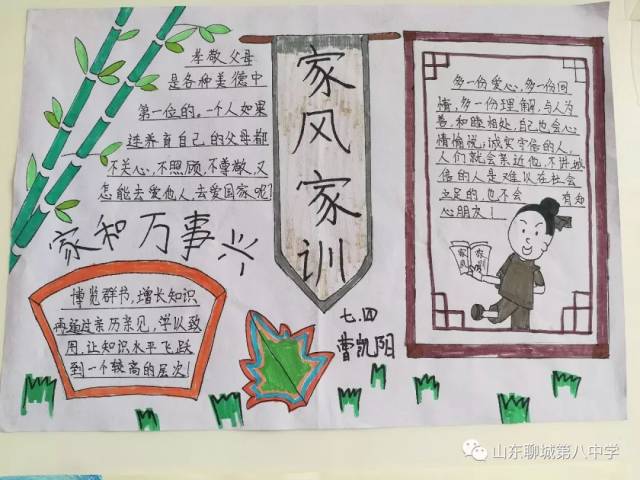 孝敬父母
是各种美德中
第一位的。一个人如果
连养育自己的父母都
不关心,不照顾,不尊敬,又
怎能去爱他人,去爱国家呢?
家和万事兴
博览群书,增长知识
再通过亲历亲见,学以致
用,让知识水平飞跃
到一个较高的层次!
家风家训
七.四
曹凯阳
多一份爱心,多一份同
情,多一份理解,与人为
善,和睦相处,自己也会心
情愉悦;诚实守信的人,
人们就会亲近他,不讲诚
信的人是难以在社会
立足的,也不会有知
心朋友!
家风
家训
山东聊城第八中学